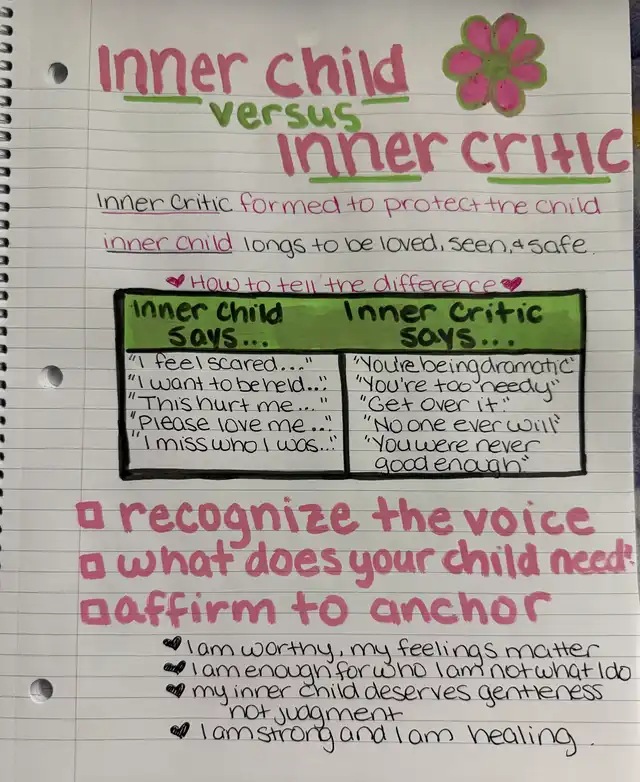 Inner child
versus
inner critic
Inner Critic formed to protect the child
inner child longs to be loved, seen, & safe.
How to tell the difference
Inner Child
says...
"I feel scared..."
"I want to be held..."
"This hurt me..."
"Please love me..."
"I miss who I was..."
Inner Critic
says...
"You're being dramatic"
"You're too needy"
"Get over it."
"No one ever will"
"You were never
good enough"
recognize the voice
what does your child need?
affirm to anchor
I am worthy, my feelings matter
I am enough for who I am not what I do
my inner child deserves gentleness
not judgment
I am strong and I am healing.